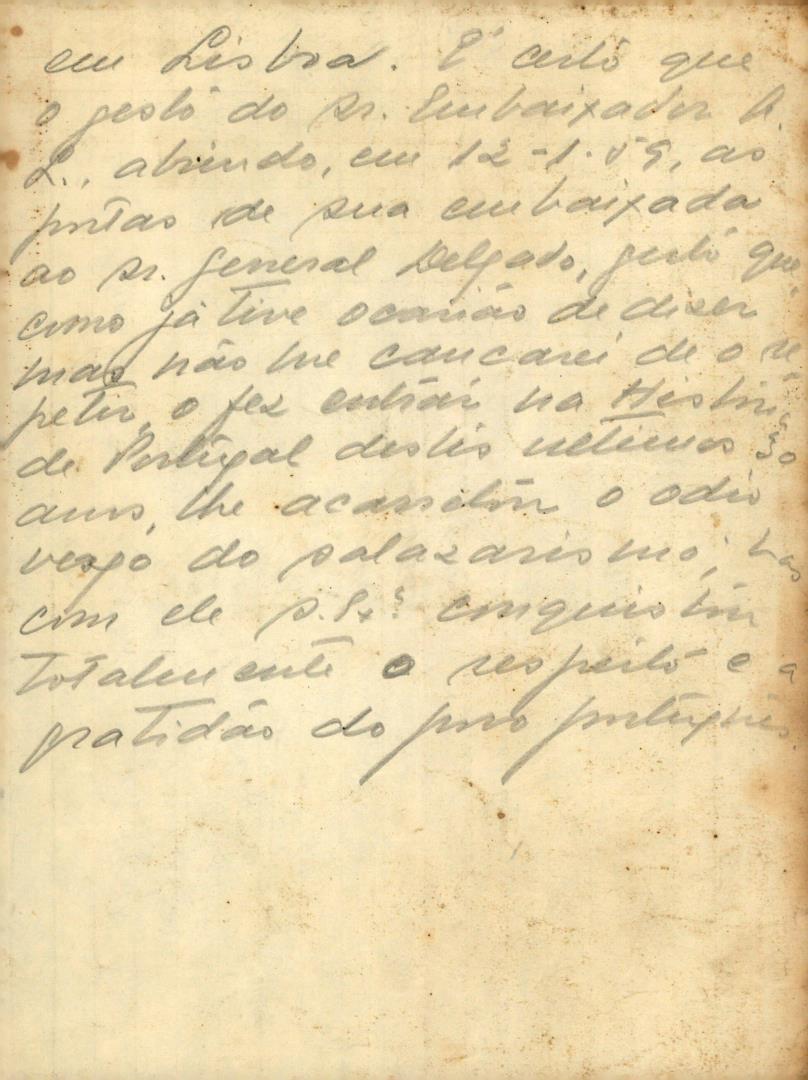 em Lisboa. É certo que
o gesto do Sr. Embaixador A.
L., abrindo, em 12-1-59, as
portas de sua embaixada
ao Sr. General Delgado, gesto que,
como já tive ocasião de dizer
mas não me cansarei de o re-
petir, o fez entrar na História
de Portugal destes ultimos 30
anos, lhe acarretou o odio
vesgo do salazarismo, mas
com ele S. Exª conquistou
totalmente o respeito e a
gratidão do povo português.